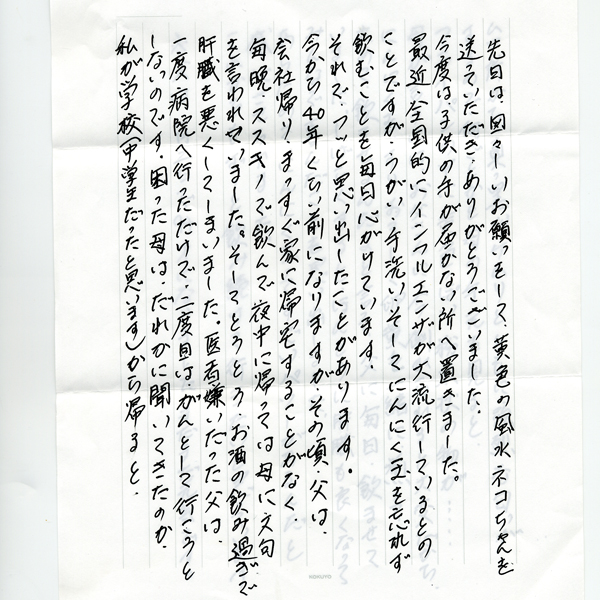 先日は、図々しいお願いをして、黄色の風水ネコちゃんを
送っていただき、ありがとうございました。
今度は、子供の手が届かない所へ置きました。
最近、全国的にインフルエンザが大流行しているとの
ことですが、うがい、手洗い、そしてにんにく玉を忘れず
飲むことを毎日心がけています。
それで、フッと思い出したことがあります。
今から40年くらい前になりますが、その頃、父は、
会社帰り、まっすぐ家に帰宅することがなく、
毎晩、ススキノで飲んで夜中に帰っては母に文句
を言われていました。そしてとうとう、お酒の飲み過ぎで
肝臓を悪くしてしまいました。医者嫌いだった父は、
一度病院へ行っただけで、二度目は、がんとして行こうと
しないのです。困った母は、だれかに聞いてきたのか、
私が学校(中学生だったと思います)から帰ると、
KOKUYO